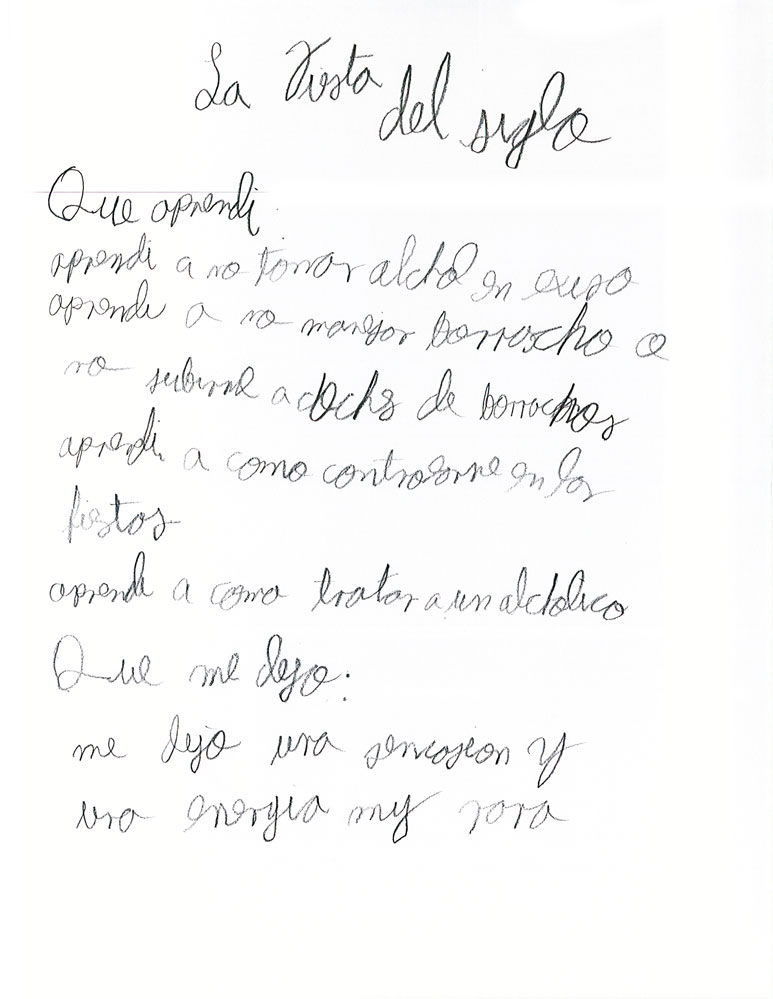 La Fiesta del siglo
Que aprendi
aprendi a no tomar alchol en exeso
aprendi a no manejar borracho o
no subirme a cochs de borrachos
aprendi a como controlarme en las
fiestas
aprendi a como tratar a un alcholico
Que me dejo:
me dejo una sencasion y
una energia my rara